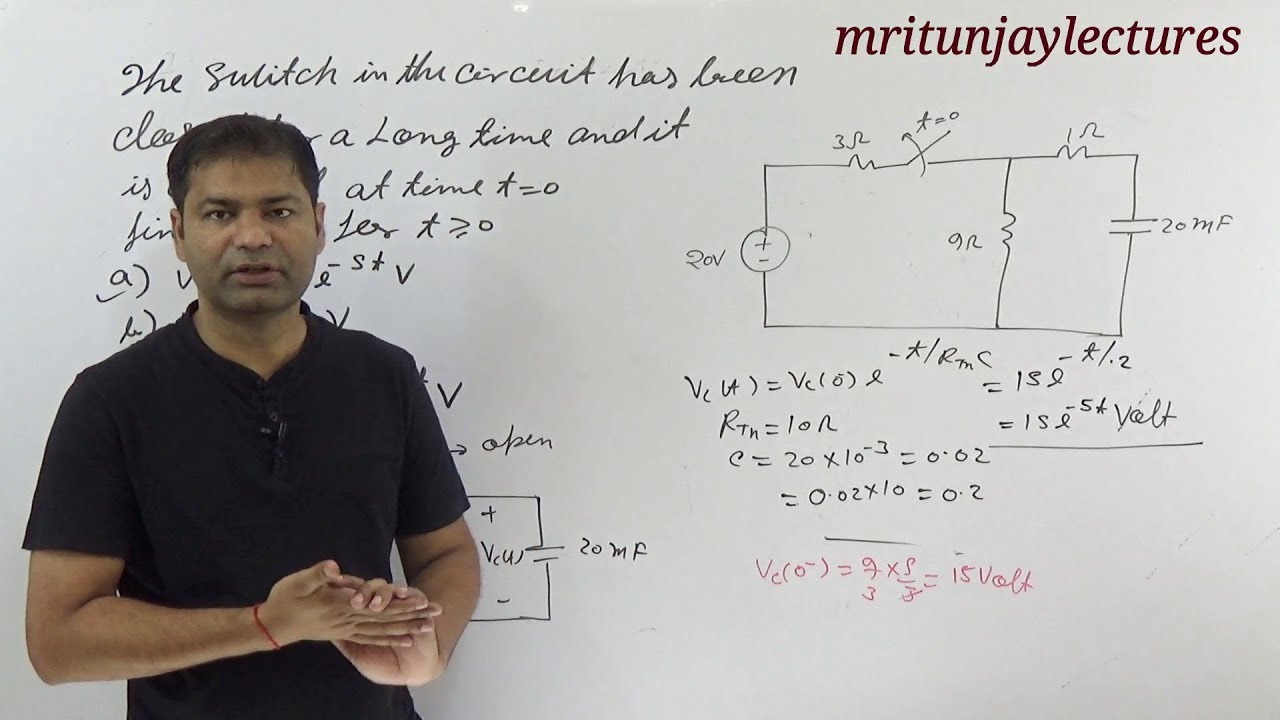 mritunjaylectures
The Switch in the circuit has been
for a Long time and it
is at time t=0
for t ≥ 0
a) V e^-5t V
b) V
V
→ open
+
Vc(t) 20mF
-
t=0
3Ω 1Ω
20V + - 9Ω 20mF
Vc(t) = Vc(0-) e^-t/RTh C = 15 e^-t/.2
RTh = 10Ω = 15 e^-5t Volt
C = 20 × 10^-3 = 0.02
= 0.02×10 = 0.2
Vc(0-) = = 15 Volt